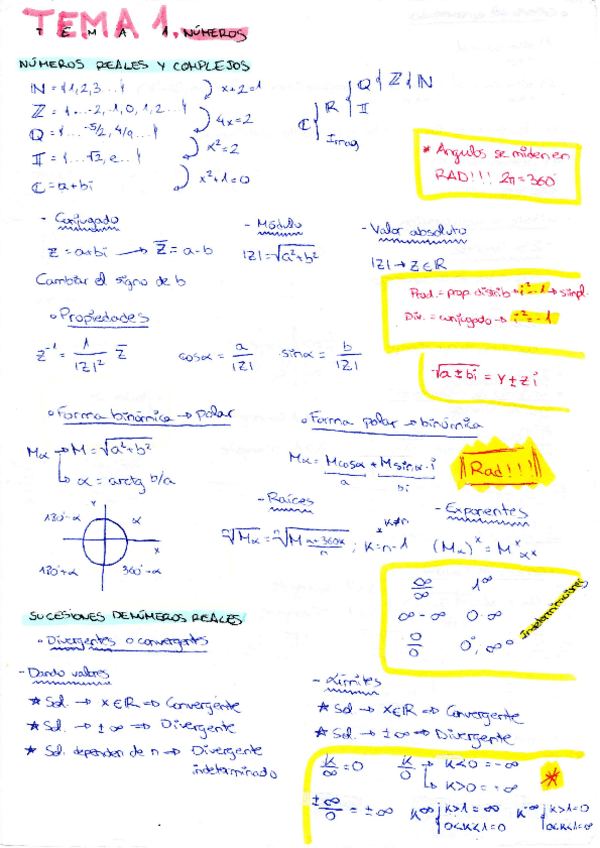 TEMA 1. NÚMEROS
NÚMEROS REALES Y COMPLEJOS
ℕ = {1, 2, 3 ...}
x+2=1
ℤ = {... -2, -1, 0, 1, 2 ...}
4x=2
ℚ = {... -5/2, 4/9 ...}
x²=2
𝕀 = {... √2, e ...}
x²+1=0
ℂ = a+bi
ℂ { ℝ { ℚ { ℤ { ℕ
𝕀
Imag
* Ángulos se miden en
RAD!!! 2π = 360°
- Conjugado
z = a+bi → z̄ = a-b
Cambiar el signo de b
- Módulo
|z| = √a²+b²
- Valor absoluto
|z| → z ∈ ℝ
Prod. = prop. distrib → i² = -1 → simpl.
Div. = conjugado → i² = -1
√a±bi = y ± zi
• Propiedades
z⁻¹ = 1/|z|² z̄
cosα = a/|z|
sinα = b/|z|
• Forma binómica → polar
Mα → M = √a²+b²
α = arctg b/a
• Forma polar → binómica
Mα = Mcosα + Msinα·i
a bi
Rad!!!
y
180°-α
α
x
180°+α
360°-α
- Raíces
* K≠n
ⁿ√Mα = ⁿ√M α+360K/n ; K=n-1
- Exponentes
(Mα)ˣ = Mˣ α·x
∞/∞ 1^∞
∞-∞ 0·∞
0/0 0⁰, ∞⁰
Indeterminaciones
SUCESIONES DE NÚMEROS REALES
• Divergentes o convergentes
- Dando valores
* Sol. → x∈ℝ ⇒ Convergente
* Sol. → ±∞ ⇒ Divergente
* Sol. dependen de n ⇒ Divergente
indeterminado
- Límites
* Sol → x∈ℝ ⇒ Convergente
* Sol → ±∞ ⇒ Divergente
K/∞ = 0
K/0 → K<0 = -∞
K>0 = +∞
*
±∞/0 = ±∞
K^∞ { K>1 = ∞
0<K<1 = 0
K^-∞ { K>1 = 0
0<K<1 = ∞